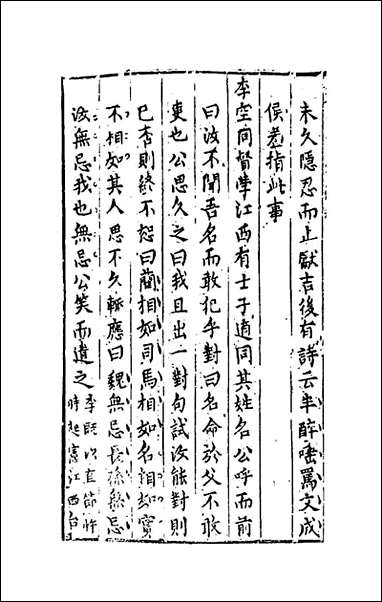 未久隱忍而止獻吉後有詩云半醉唾罵文成
侯蓋指此事
李空同督學江西有士子適同其姓名公呼而前
曰汝不聞吾名而敢犯乎對曰名命於父不敢
更也公思久之曰我且出一對句試汝能對則
已否則終不恕曰藺相如司馬相如名相如實
不相如其人思不久輒應曰魏無忌長孫無忌
汝無忌我也無忌公笑而遣之
李既以直節忤
時起憲江西台